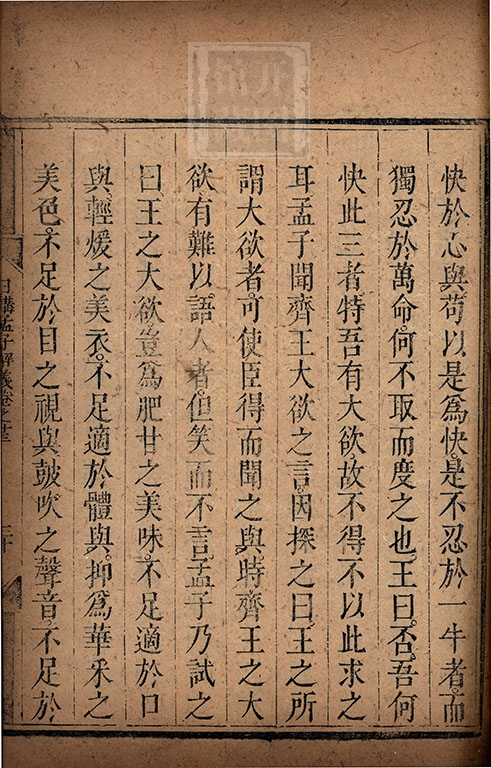 快於心與苟以是爲快是不忍於一牛者而
獨忍於萬命何不取而度之也王曰否吾何
快此三者特吾有大欲故不得不以此求之
耳孟子聞齊王大欲之言因探之曰王之所
謂大欲者可使臣得而聞之與時齊王之大
欲有難以語人者但笑而不言孟子乃試之
曰王之大欲豈爲肥甘之美味不足適於口
與輕煖之美衣不足適於體與抑爲華采之
美色不足於目之視與鼓吹之聲音不足於
日講孟子解義卷之 三十